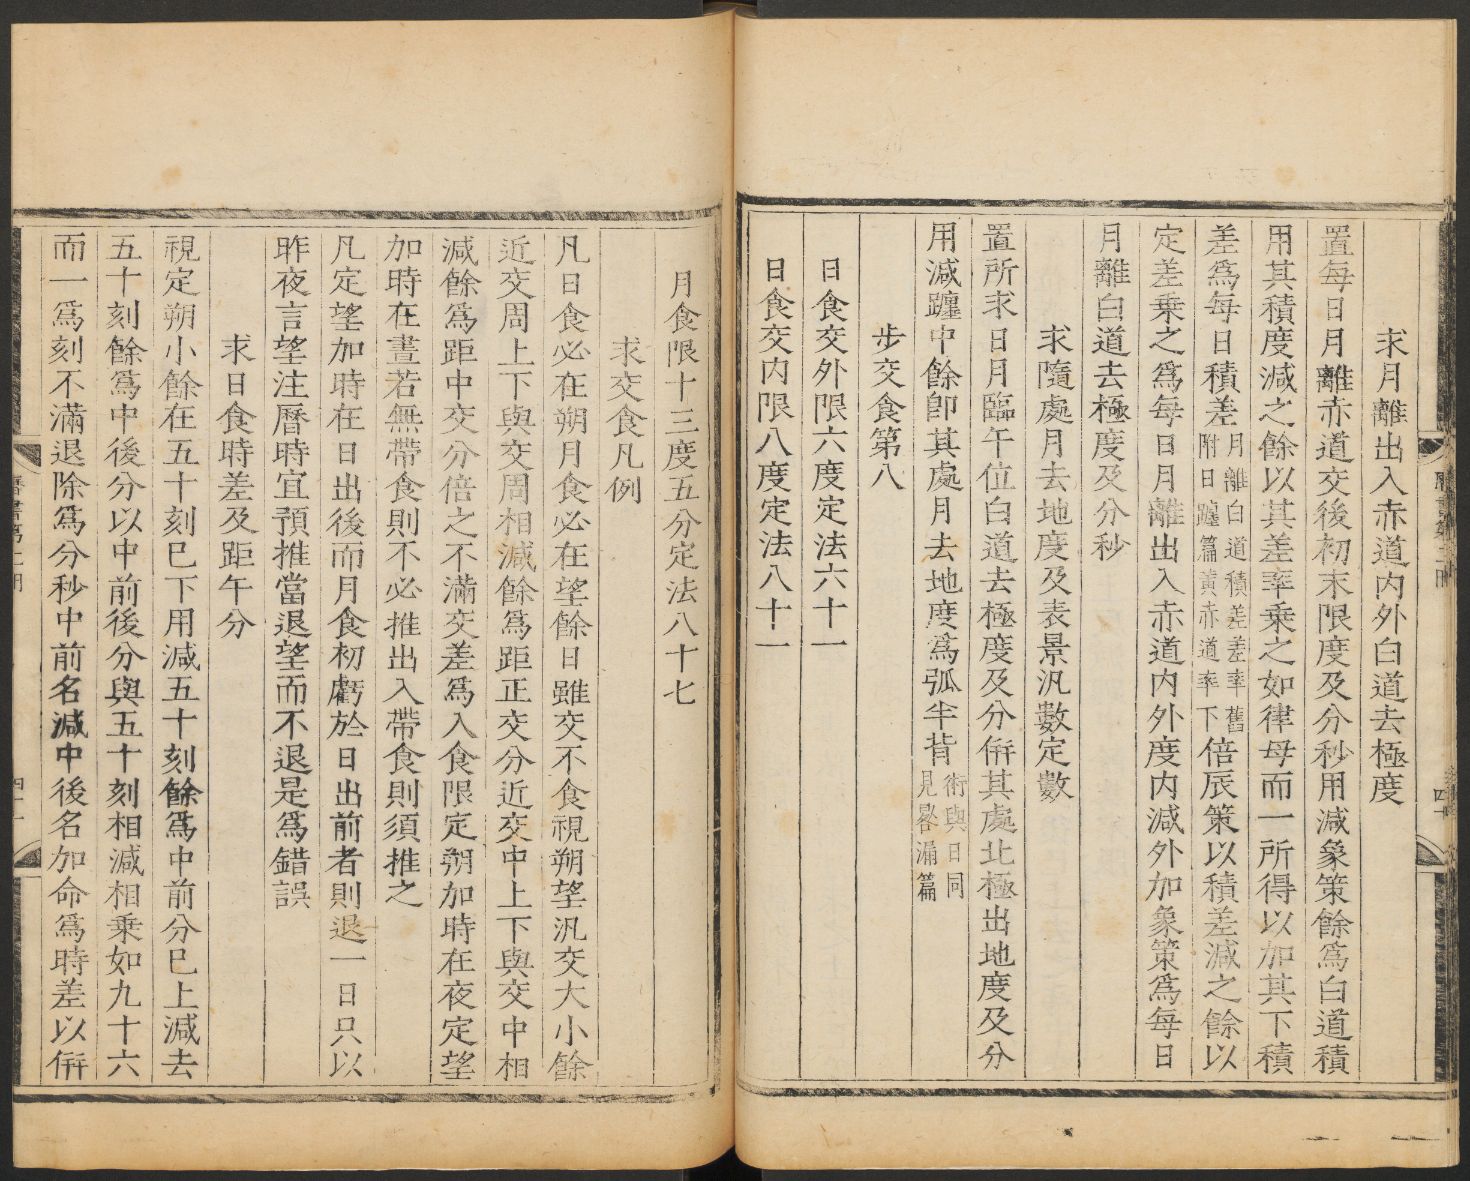 求月離出入赤道內外白道去極度
置每日月離赤道交後初末限度及分秒用減象策餘爲白道積
用其積度減之餘以其差率乗之如律母而一所得以加其下積
差爲每日積差月離白道積差差率舊附日躔篇黃赤道率下倍辰策以積差減之餘以
定差乗之爲每日月離出入赤道內外度內減外加象策爲每日
月離白道去極度及分秒
求隨處月去地度及表景汎數定數
置所求日月臨午位白道去極度及分倂其處北極出地度及分
用減躔中餘卽其處月去地度爲弧半背術與日同見晷漏篇
步交食第八
日食交外限六度定法六十一
日食交内限八度定法八十一
月食限十三度五分定法八十七
求交食凡例
凡日食必在朔月食必在望餘日雖交不食視朔望汎交大小餘
近交周上下與交周相減餘爲距正交分近交中上下與交中相
減餘爲距中交分倍之不滿交差爲入食限定朔加時在夜定望
加時在晝若無帶食則不必推出入帶食則須推之
凡定望加時在日出後而月食初虧於日出前者則退一日只以
昨夜言望注曆時宜預推當退望而不退是爲錯誤
求日食時差及距午分
視定朔小餘在五十刻巳下用減五十刻餘爲中前分巳上減去
五十刻餘爲中後分以中前後分與五十刻相減相乗如九十六
而一爲刻不滿退除爲分秒中前名減中後名加命爲時差以倂